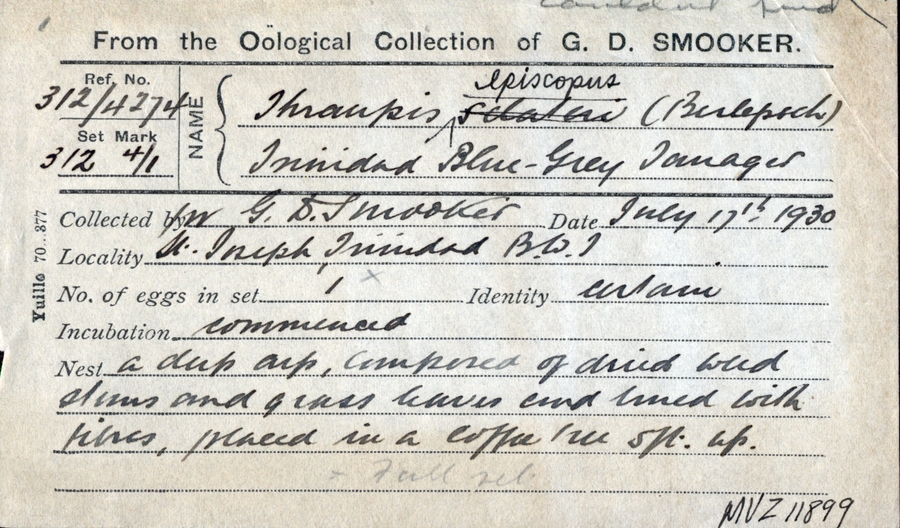 couldn't find
From the Oölogical Collection of G. D. SMOOKER.
Ref. No.
312/4274
Set Mark
312 4/1
NAME
episcopus
Thraupis sclateri (Berlepsch)
Trinidad Blue-Grey Tanager
Collected by G. D. Smooker Date July 17th 1930
Locality St. Joseph, Trinidad B.W.I
No. of eggs in set 1 x Identity certain
Incubation commenced
Nest a deep cup, composed of dried weed
stems and grass leaves and lined with
fibres, placed in a coffee tree 5ft. up.
Full set
Yuille 70..377
MVZ 11899